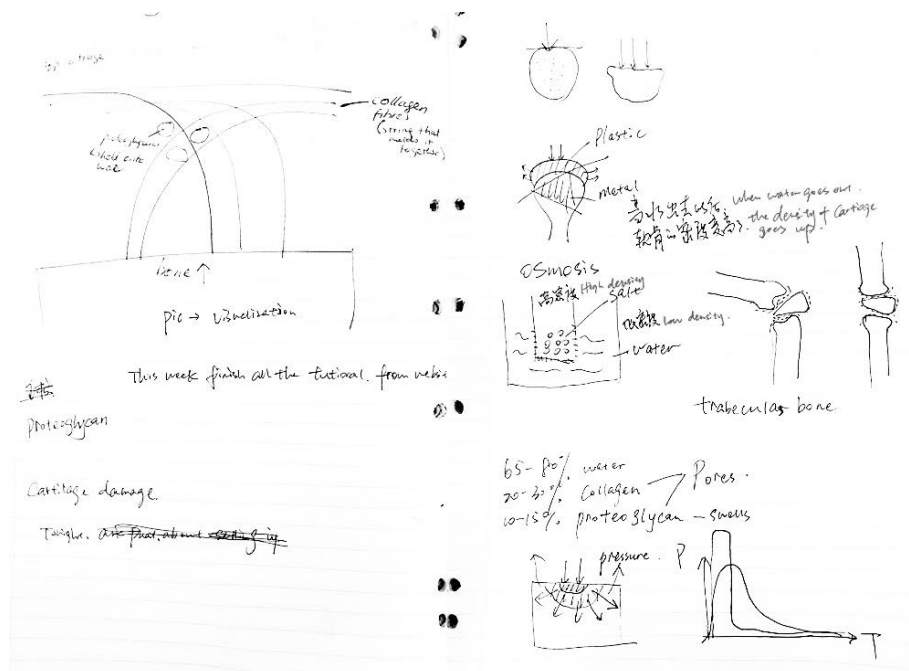 collagen
fibres
(string that
holds it
together)
bone ↑
pic → visualization
This week finish all the tutorial. from website
proteoglycan
Cartilage damage.
Tonight.
Plastic
metal
when water goes out.
the density of cartilage
goes up.
OSMOSIS
高密度 High density
salt
低密度 Low density.
water
trabecular bone
65-80% water
20-30% collagen
Pores.
10-15% proteoglycan — swells
pressure.
P
T